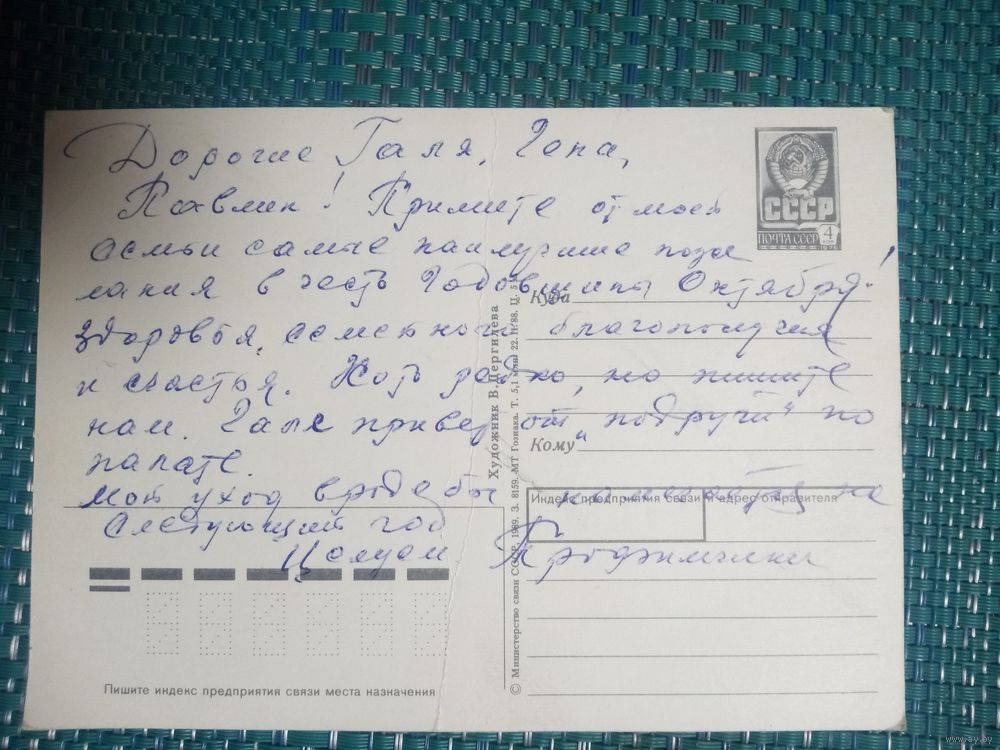 Дорогие Галя, Гена,
Павлик! Примите от моей
семьи самые наилучшие поже
лания в честь Годовщины Октября!
Здоровья, семейного благополучия
и счастья. Хоть редко, но пишите
нам. Гале привет от "подруги" по
палате.
Мой уход вроде бы на
Следующий год
Целуем
СССР
ПОЧТА СССР 4
1978
Куда
Кому
Индекс предприятия связи и адрес отправителя
Художник В. Дергилева
© Министерство связи СССР, 1989. З. 8159. МТ Гознака. Т. 5,1 млн. 22.11.88. Ц. 5
Пишите индекс предприятия связи места назначения
www.ay.by